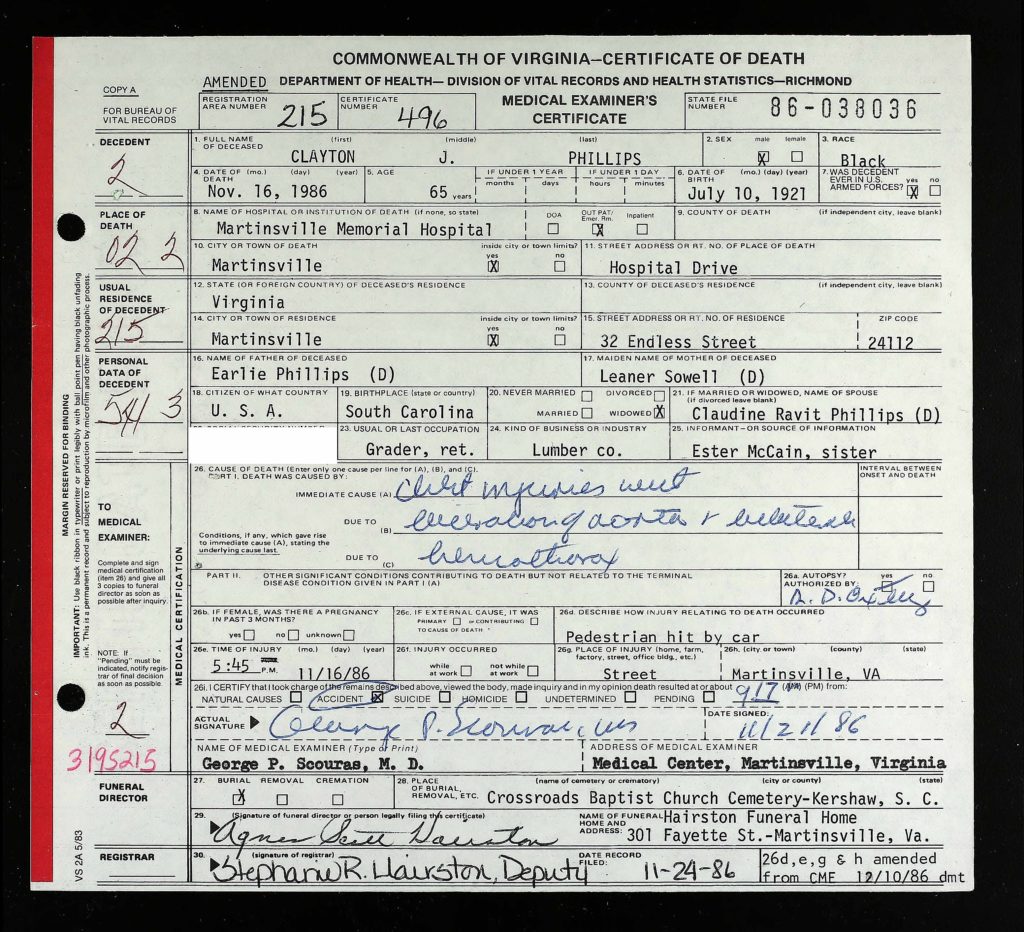 COMMONWEALTH OF VIRGINIA—CERTIFICATE OF DEATH
AMENDED DEPARTMENT OF HEALTH— DIVISION OF VITAL RECORDS AND HEALTH STATISTICS—RICHMOND
COPY A
FOR BUREAU OF VITAL RECORDS
REGISTRATION AREA NUMBER 215
CERTIFICATE NUMBER 496
MEDICAL EXAMINER'S CERTIFICATE
STATE FILE NUMBER 86-038036
DECEDENT
2
1. FULL NAME OF DECEASED (first) (middle) (last)
CLAYTON J. PHILLIPS
2. SEX male female
X
3. RACE
Black
4. DATE OF DEATH (mo.) (day) (year)
Nov. 16, 1986
5. AGE
65 years
IF UNDER 1 YEAR months days
IF UNDER 1 DAY hours minutes
6. DATE OF BIRTH (mo.) (day) (year)
July 10, 1921
7. WAS DECEDENT EVER IN U.S. ARMED FORCES? yes no
X
PLACE OF DEATH
02 2
8. NAME OF HOSPITAL OR INSTITUTION OF DEATH (if none, so state)
Martinsville Memorial Hospital
DOA OUT PAT/ Emer. Rm. Inpatient
X
9. COUNTY OF DEATH (if independent city, leave blank)
10. CITY OR TOWN OF DEATH inside city or town limits? yes no
Martinsville X
11. STREET ADDRESS OR RT. NO. OF PLACE OF DEATH
Hospital Drive
USUAL RESIDENCE OF DECEDENT
215
12. STATE (OR FOREIGN COUNTRY) OF DECEASED'S RESIDENCE
Virginia
13. COUNTY OF DECEASED'S RESIDENCE (if independent city, leave blank)
14. CITY OR TOWN OF RESIDENCE inside city or town limits? yes no
Martinsville X
15. STREET ADDRESS OR RT. NO. OF RESIDENCE ZIP CODE
32 Endless Street 24112
PERSONAL DATA OF DECEDENT
541 3
16. NAME OF FATHER OF DECEASED
Earlie Phillips (D)
17. MAIDEN NAME OF MOTHER OF DECEASED
Leaner Sowell (D)
18. CITIZEN OF WHAT COUNTRY
U. S. A.
19. BIRTHPLACE (state or country)
South Carolina
20. NEVER MARRIED DIVORCED
MARRIED WIDOWED X
21. IF MARRIED OR WIDOWED, NAME OF SPOUSE (if divorced leave blank)
Claudine Ravit Phillips (D)
23. USUAL OR LAST OCCUPATION
Grader, ret.
24. KIND OF BUSINESS OR INDUSTRY
Lumber co.
25. INFORMANT—OR SOURCE OF INFORMATION
Ester McCain, sister
MARGIN RESERVED FOR BINDING
IMPORTANT: Use black ribbon in typewriter or print legibly with ball point pen having black unfading ink. This is a permanent record and subject to reproduction by microfilm and other photographic process.
MEDICAL CERTIFICATION
TO MEDICAL EXAMINER:
Complete and sign medical certification (item 26) and give all 3 copies to funeral director as soon as possible after inquiry.
NOTE: If "Pending" must be indicated, notify registrar of final decision as soon as possible.
2
3195215
26. CAUSE OF DEATH (Enter only one cause per line for (A), (B), and (C).
PART I. DEATH WAS CAUSED BY:
INTERVAL BETWEEN ONSET AND DEATH
IMMEDIATE CAUSE (A) Chest injuries with
DUE TO (B) laceration of aorta & bilateral
Conditions, if any, which gave rise to immediate cause (A), stating the underlying cause last.
DUE TO (C) hemothorax
PART II. OTHER SIGNIFICANT CONDITIONS CONTRIBUTING TO DEATH BUT NOT RELATED TO THE TERMINAL DISEASE CONDITION GIVEN IN PART I (A)
26a. AUTOPSY? yes no
AUTHORIZED BY:
26b. IF FEMALE, WAS THERE A PREGNANCY IN PAST 3 MONTHS?
yes no unknown
26c. IF EXTERNAL CAUSE, IT WAS PRIMARY or CONTRIBUTING TO CAUSE OF DEATH
26d. DESCRIBE HOW INJURY RELATING TO DEATH OCCURRED
Pedestrian hit by car
26e. TIME OF INJURY (mo.) (day) (year)
5:45 P.M. 11/16/86
26f. INJURY OCCURRED
while at work not while at work
26g. PLACE OF INJURY (home, farm, factory, street, office bldg., etc.)
Street
26h. (city or town) (county) (state)
Martinsville, VA
26i. I CERTIFY that I took charge of the remains described above, viewed the body, made inquiry and in my opinion death resulted at or about 917 (AM) (PM) from:
NATURAL CAUSES ACCIDENT X SUICIDE HOMICIDE UNDETERMINED PENDING
ACTUAL SIGNATURE George P. Scouras, MD
DATE SIGNED: 11/21/86
NAME OF MEDICAL EXAMINER (Type or Print)
George P. Scouras, M. D.
ADDRESS OF MEDICAL EXAMINER
Medical Center, Martinsville, Virginia
FUNERAL DIRECTOR
27. BURIAL REMOVAL CREMATION
X
28. PLACE OF BURIAL, REMOVAL, ETC. (name of cemetery or crematory) (city or county) (state)
Crossroads Baptist Church Cemetery-Kershaw, S. C.
29. (Signature of funeral director or person legally filing this certificate)
Agnes Scott Hairston
NAME OF FUNERAL HOME AND ADDRESS: Hairston Funeral Home
301 Fayette St.-Martinsville, Va.
VS 2A 5/83
REGISTRAR
30. (signature of registrar)
Stephanie R. Hairston, Deputy
DATE RECORD FILED: 11-24-86
26d,e,g & h amended
from CME 12/10/86 dmt